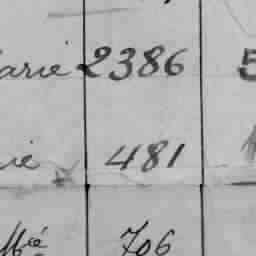 arié 2386 5
ié 481
Mié 706